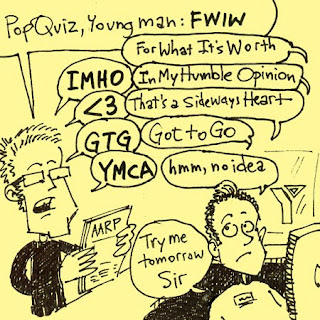 Pop Quiz, Young man: FWIW
For What It's Worth
IMHO
In My Humble Opinion
<3
That's a Sideways Heart
GTG
Got to Go
YMCA
hmm, no idea
AARP
Try me
tomorrow
Sir